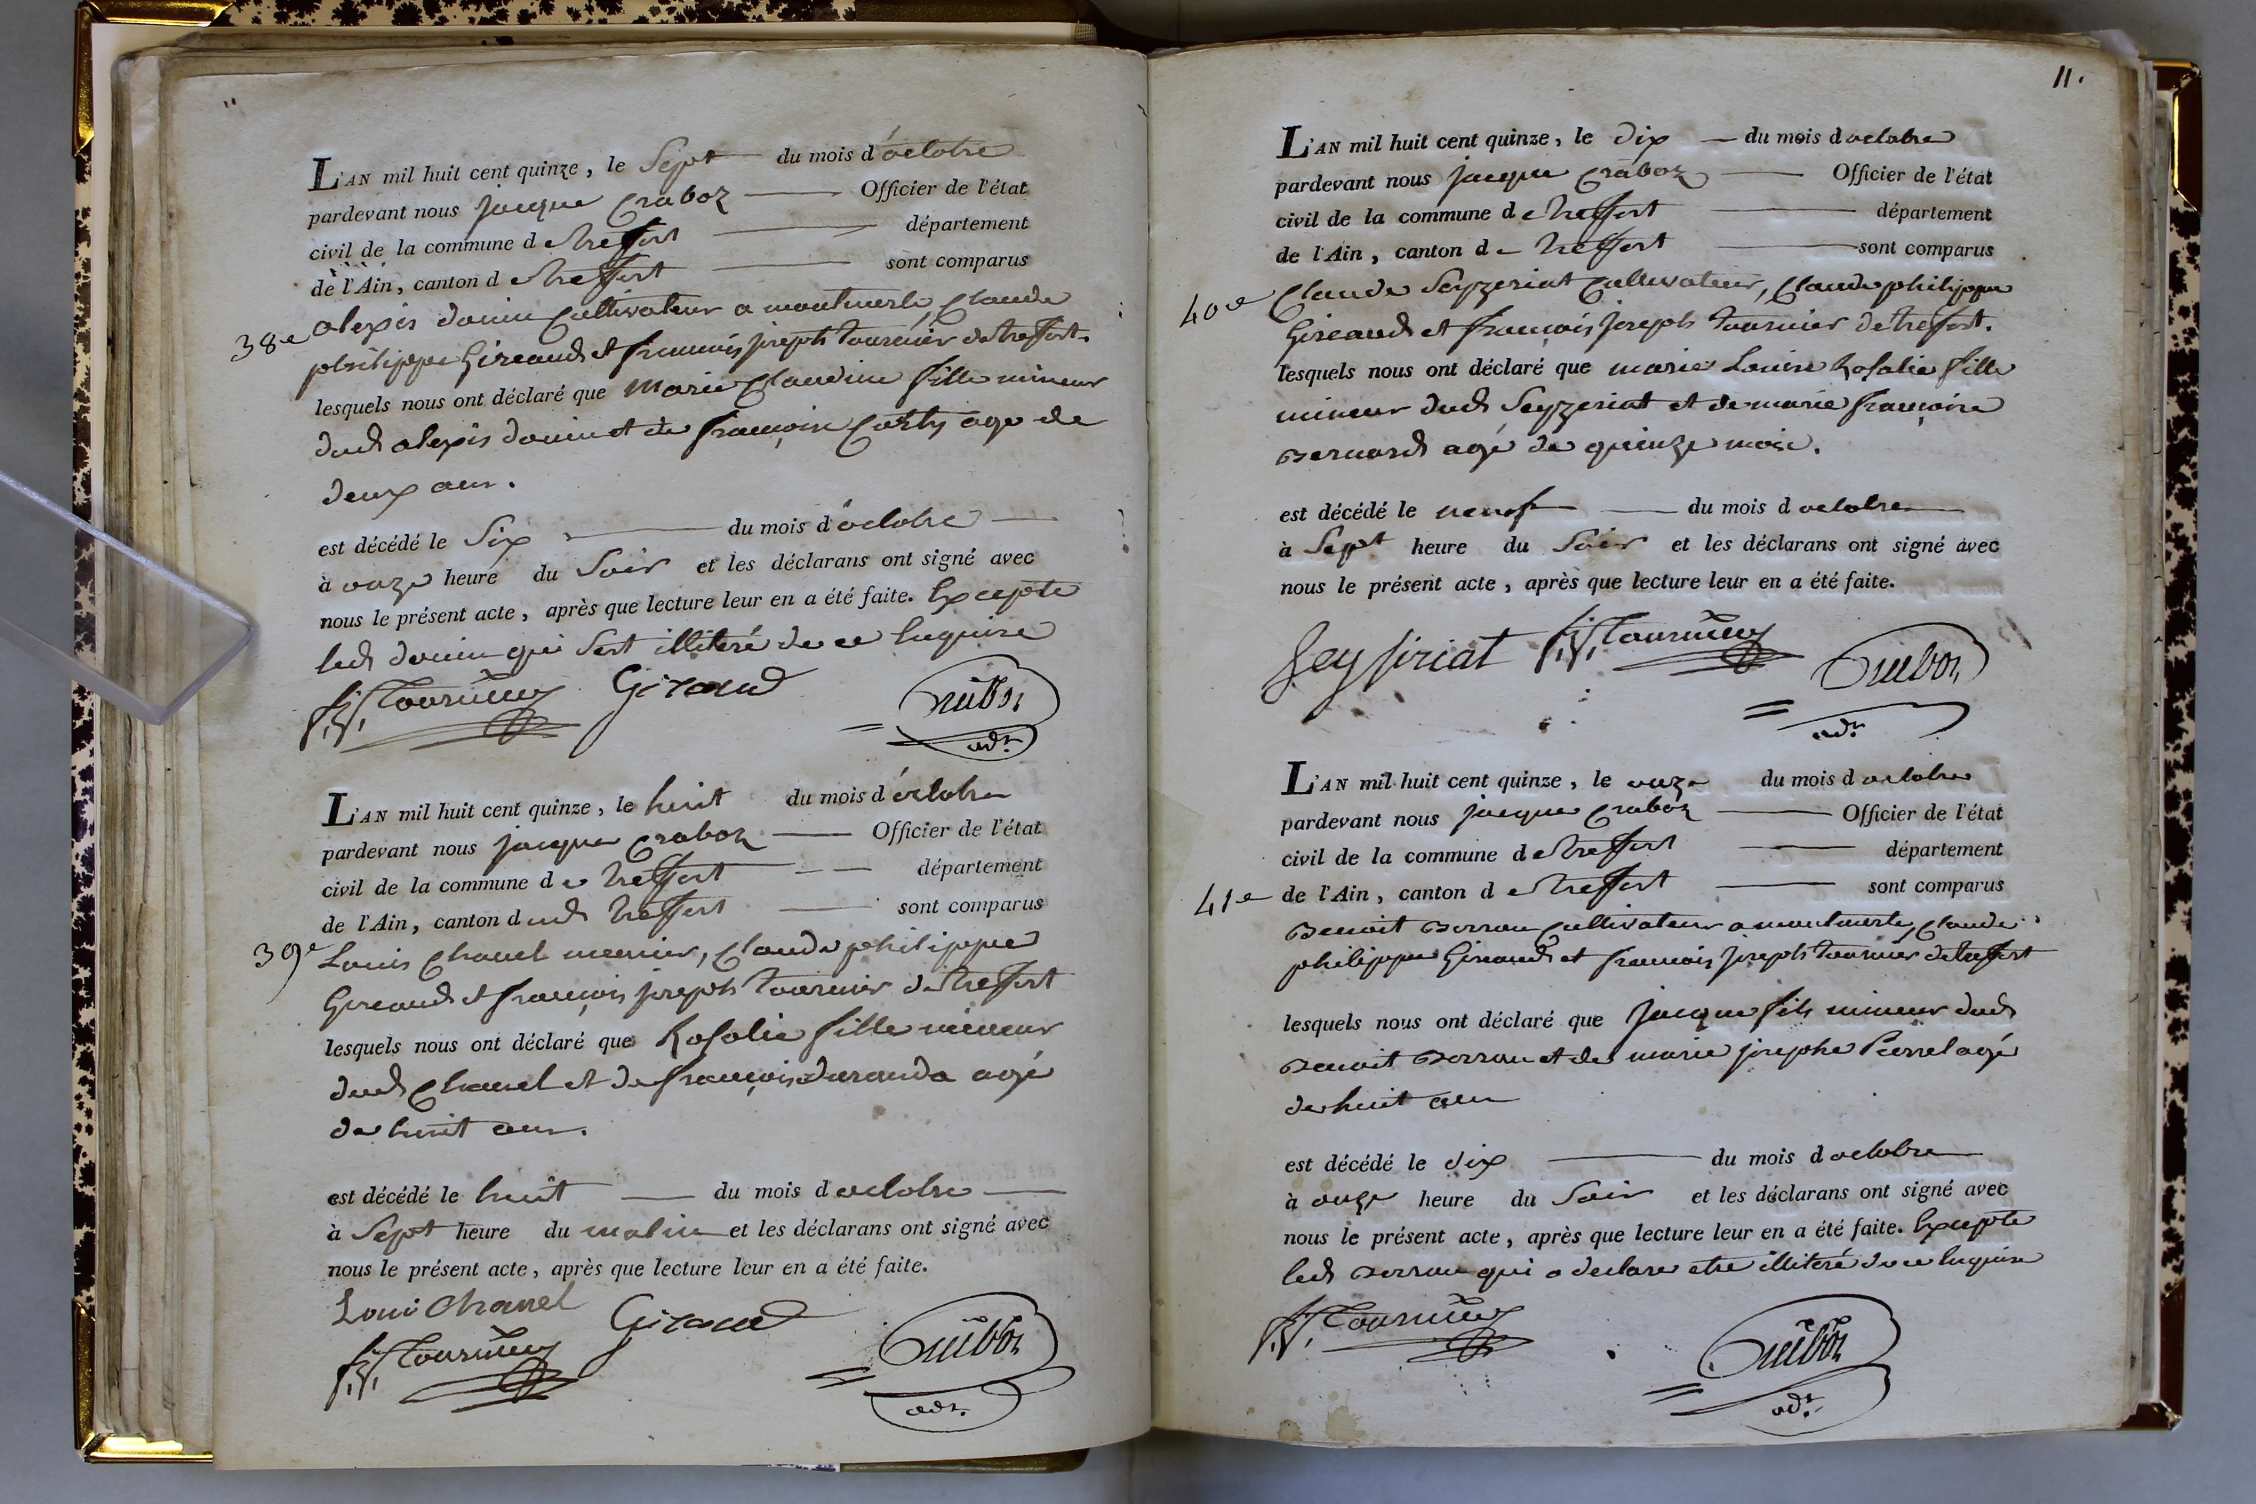 L'AN mil huit cent quinze, le Sept du mois d'octobre
pardevant nous jacque Craboz Officier de l'état
civil de la commune de treffort département
de l'Ain, canton de treffort sont comparus
38e alexis donin Cultivateur a montmerle, Claude
philippe Gireaud et francois joseph tournier de treffort.
lesquels nous ont déclaré que marie Claudine fille mineur
dud alexis donin et de francoise age de
deux ans.
est décédé le Six du mois d'octobre
à onze heure du Soir et les déclarans ont signé avec
nous le présent acte, après que lecture leur en a été faite. Excepte
led donin qui s'est illiteré de ce Enquire
f.j. Tournier Giraud
adt.
L'AN mil huit cent quinze, le huit du mois d'octobre
pardevant nous jacque Craboz Officier de l'état
civil de la commune de treffort département
de l'Ain, canton dud treffort sont comparus
39e Louis Chanel meunier, Claude philippe
Gireaud et francois joseph tournier de treffort
lesquels nous ont déclaré que Rosalie fille mineur
dud Chanel et de francoise durande agé
de huit ans.
est décédé le huit du mois d octobre
à Sept heure du matin et les déclarans ont signé avec
nous le présent acte, après que lecture leur en a été faite.
Loui Chanel
f.j. Tournier Giraud
adt.
11.
L'AN mil huit cent quinze, le dix du mois d octobre
pardevant nous jacque Craboz Officier de l'état
civil de la commune de treffort département
de l'Ain, canton de treffort sont comparus
40e Claude Seyzeriat Cultivateur, Claude philippe
Gireaud et francois joseph tournier de treffort.
lesquels nous ont déclaré que marie Louise Rosalie fille
mineur dud Seyzeriat et de marie francoise
Bernard agé de quinze mois.
est décédé le neuf du mois d octobre
à Sept heure du Soir et les déclarans ont signé avec
nous le présent acte, après que lecture leur en a été faite.
Seysiriat f.j. Tournier
adt.
L'AN mil huit cent quinze, le onze du mois d octobre
pardevant nous jacque Craboz Officier de l'état
civil de la commune de treffort département
41e de l'Ain, canton de treffort sont comparus
Benoit Borron Cultivateur a montmerle, Claude
philippe Gireaud et francois joseph tournier de treffort
lesquels nous ont déclaré que jacque fils mineur dud
Benoit Borron et de marie josephe Perrel agé
de huit ans
est décédé le dix du mois d octobre
à onze heure du Soir et les déclarans ont signé avec
nous le présent acte, après que lecture leur en a été faite. Excepte
led Borron qui a declare etre illiteré de ce Enquire
f.j. Tournier
adt.